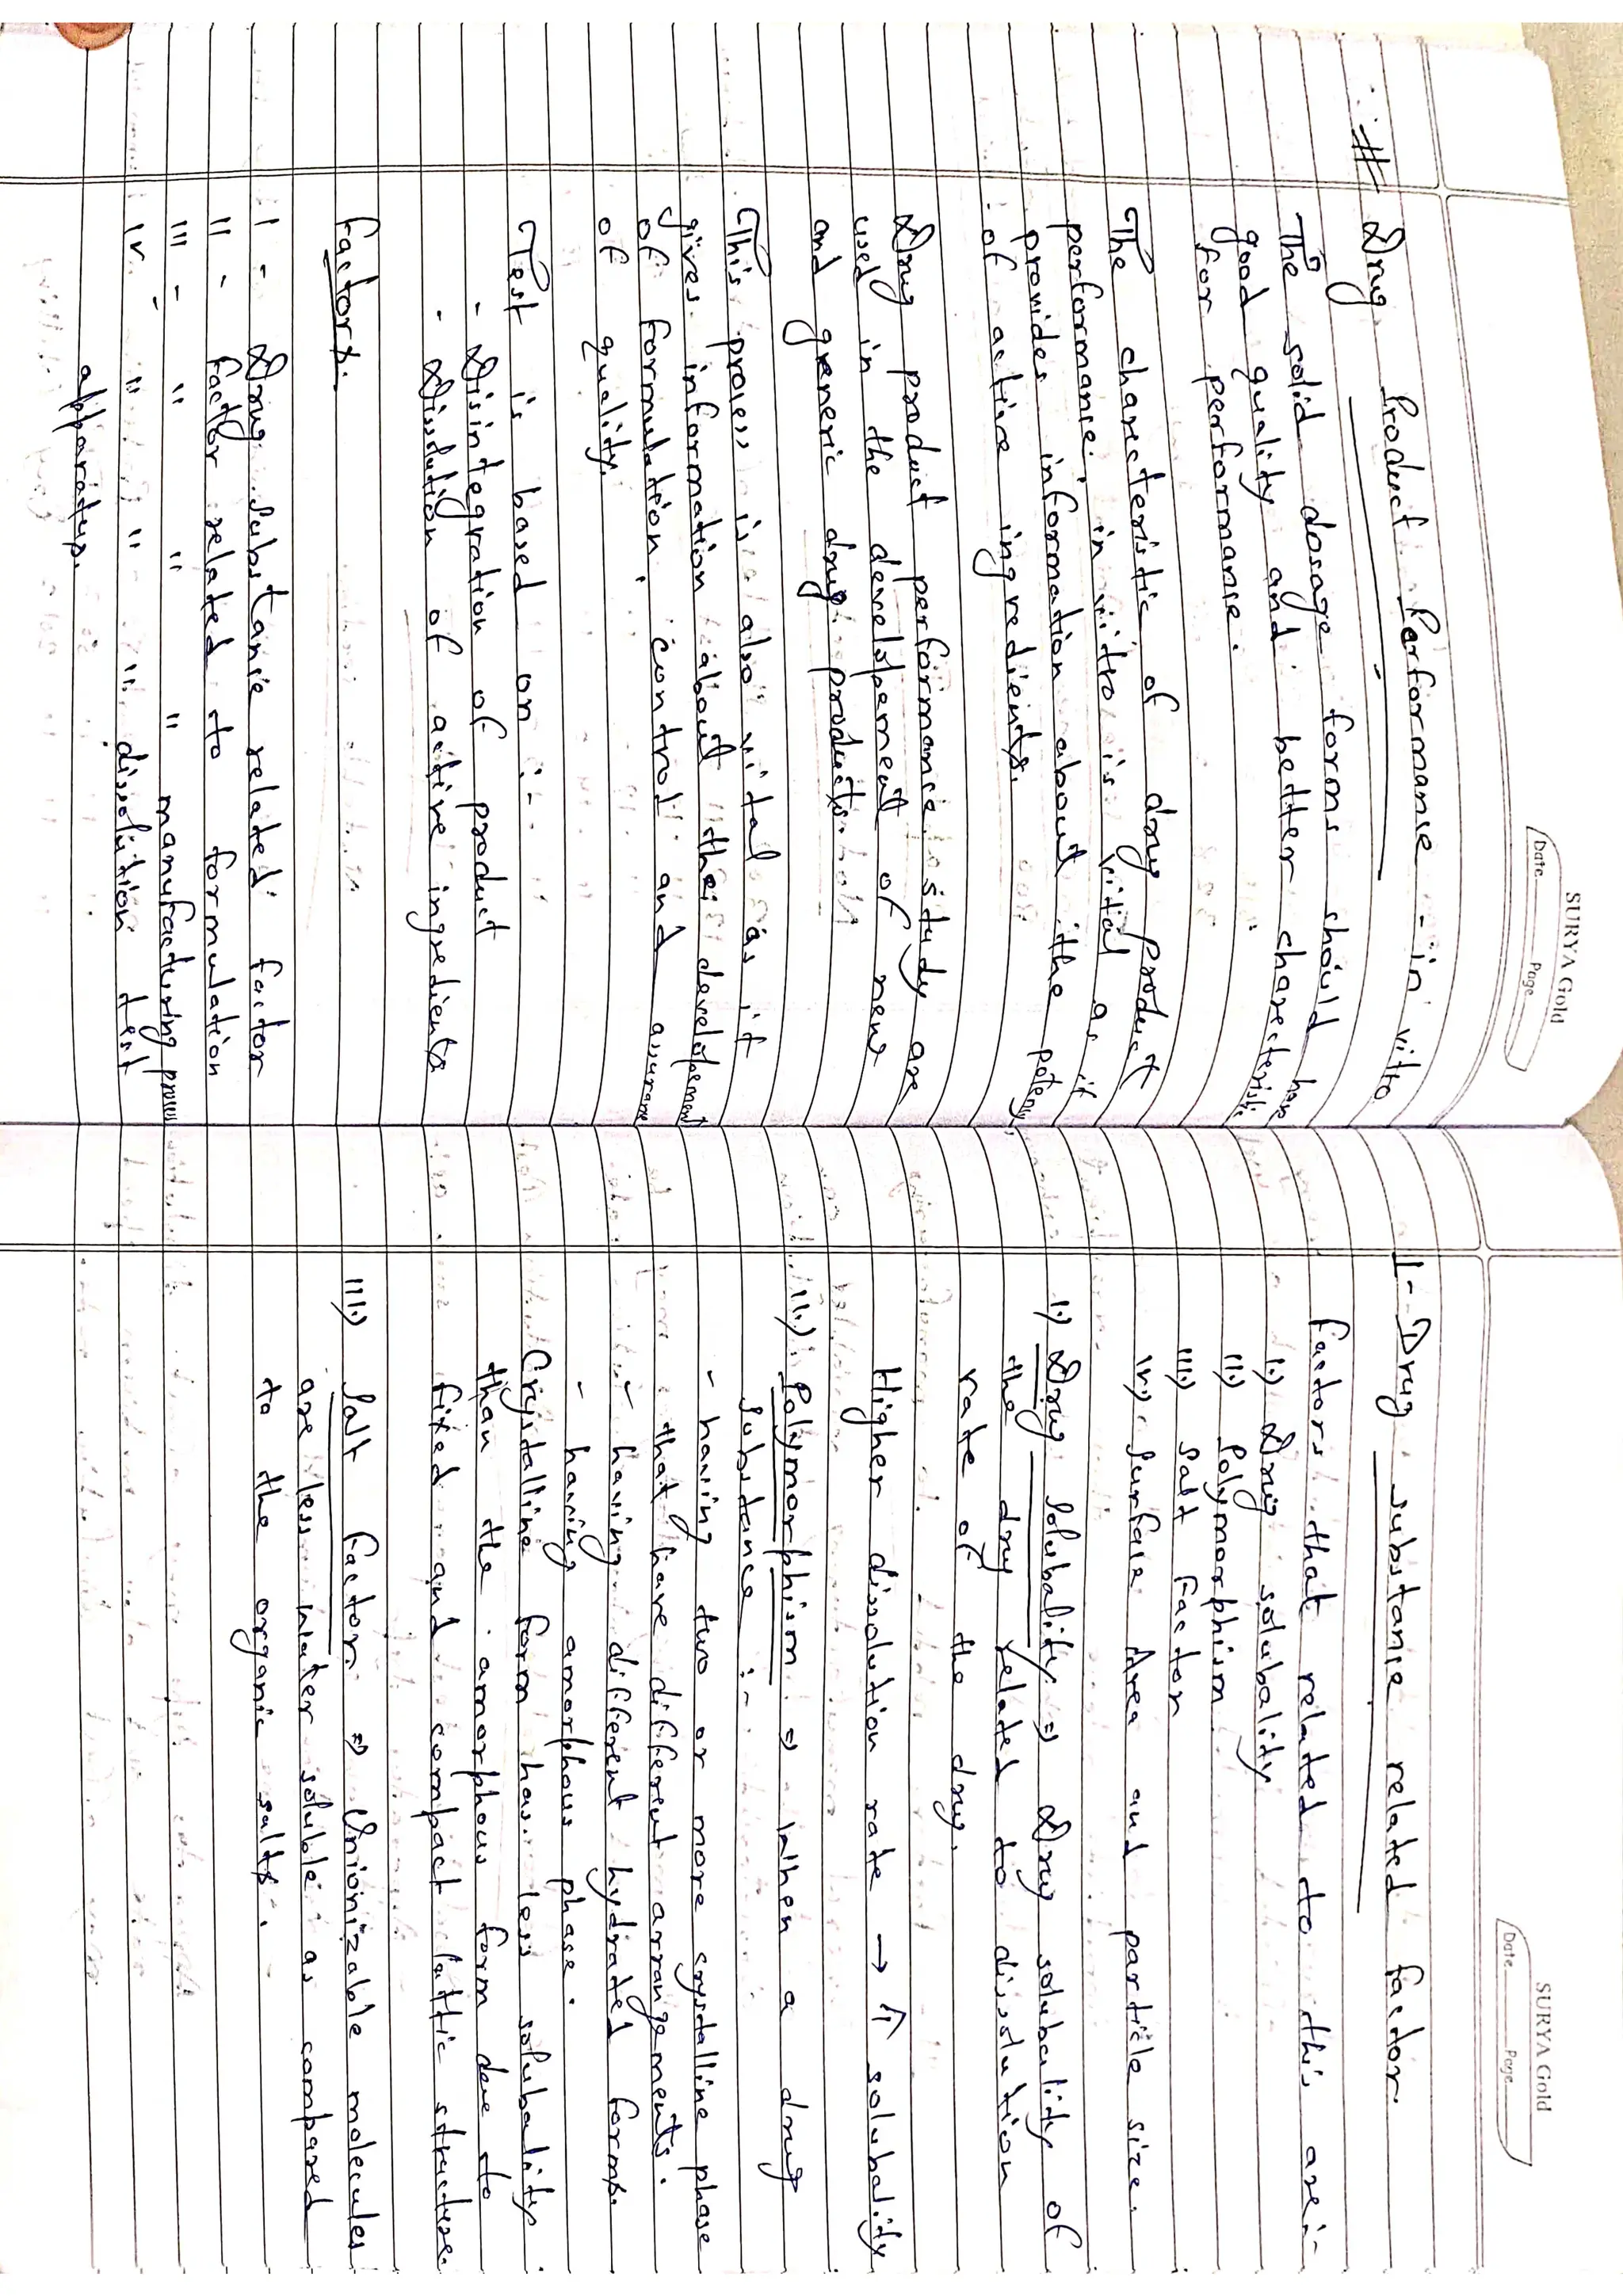 SURYA Gold
Date____Page____
# Drug Product Performanse - in vitro
The solid dosage forms should have
good quality and better charecteristic
for performanse.
The charecteristic of drug product
performanse in vitro is vital as it
provides information about the potency
of active ingredients.
Drug product performance study are
used in the development of new
and generic drug products.
This process is also vital as it
gives information about the development
of formulation, control and assurance
of quality.
Test is based on :-
- Disintegration of product
- Dissolution of active ingredients
Factors.
I - Drug substance related factor
II - Factor related to formulation
III - " " " manufacturing process
IV - " " " dissolution test
apparatus.
SURYA Gold
Date____Page____
I- Drug substance related factor.
Factors that related to this are:-
i) Drug solubality
ii) Polymorphism
iii) Salt Factor
iv) Surface Area and particle size.
i) Drug Solubality => Drug solubality of
the drug related to dissolution
rate of the drug.
Higher dissolution rate → ↑ solubality
ii) Polymorphism => When a drug
Substance :-
- having two or more crystalline phase
that have different arrangements.
- having different hydrated forms.
- having amorphous phase.
Crystalline form has less solubality
than the amorphous form due to
fixed and compact lattic structure.
iii) Salt Factor => Unionizable molecules
are less water soluble as compared
to the organic salts.